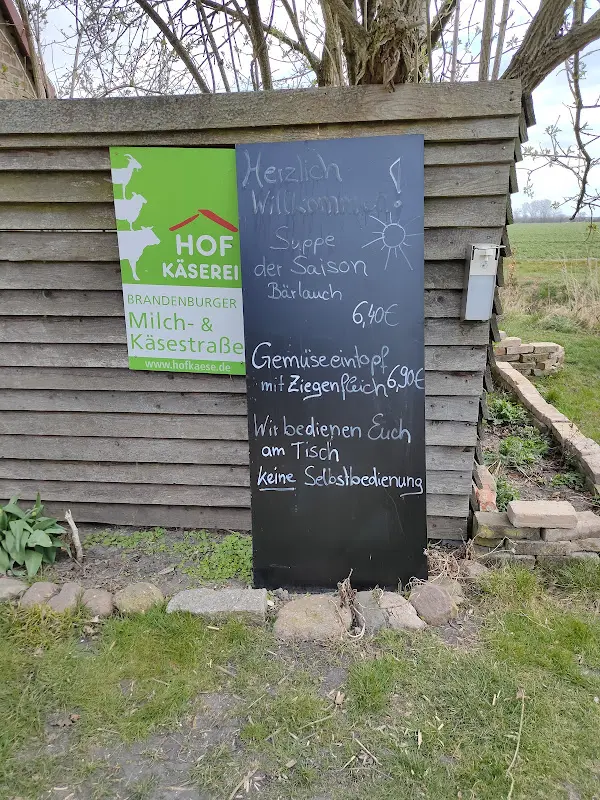 HOF
KÄSEREI
BRANDENBURGER
Milch- &
Käsestraße
www.hofkaese.de
Herzlich
Willkommen!
Suppe
der Saison
Bärlauch
6,40€
Gemüseeintopf
mit Ziegenfleich 6,90€
Wir bedienen Euch
am Tisch
keine Selbstbedienung